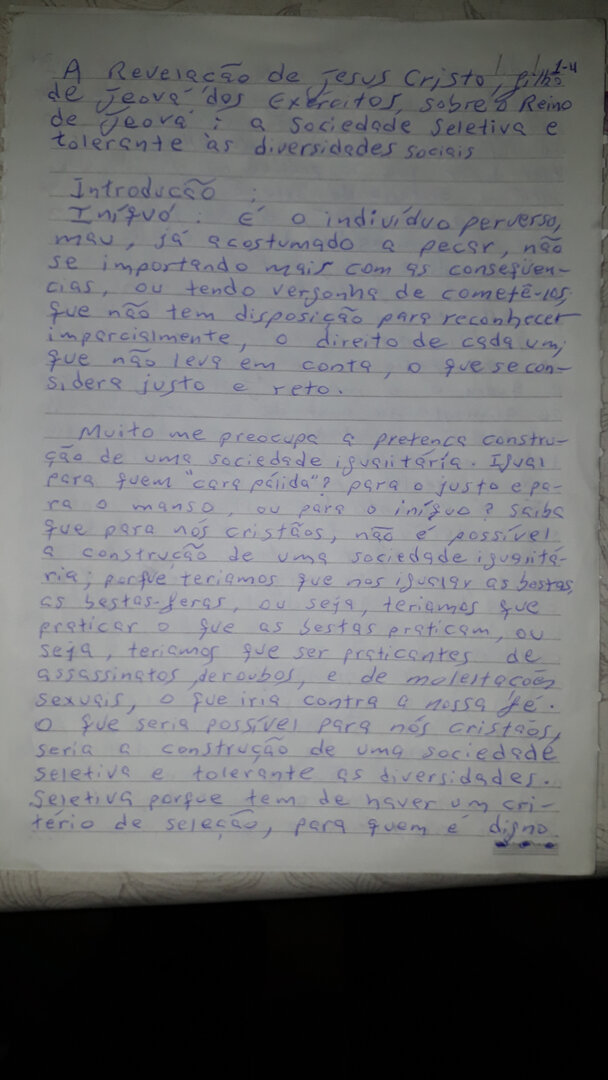 1-4
A Revelação de Jesus Cristo, filho
de Jeová dos Exércitos, sobre o Reino
de Jeová: a Sociedade Seletiva e
tolerante às diversidades sociais
Introducão:
Iníquo: É o indivíduo perverso,
mau, já acostumado a pecar, não
se importando mais com as consequen-
cias, ou tendo vergonha de cometê-los,
que não tem disposição para reconhecer
imparcialmente, o direito de cada um;
que não leva em conta, o que se con-
sidera justo e reto.
Muito me preocupa a pretença constru-
ção de uma sociedade igualitária. Igual
para quem "cara pálida"? para o justo e pa-
ra o manso, ou para o iníquo? Saiba
que para nós cristãos, não é possível
a construção de uma sociedade igualitá-
ria; porque teriamos que nos igualar as bestas,
as bestas-feras, ou seja, teriamos que
praticar o que as bestas praticam, ou
seja, teriamos que ser praticantes de
assassinatos, de roubos, e de molestações
sexuais, o que iria contra a nossa fé.
O que seria possível para nós cristãos,
seria a construção de uma sociedade
seletiva e tolerante as diversidades.
Seletiva porque tem de haver um cri-
tério de seleção, para quem é digno